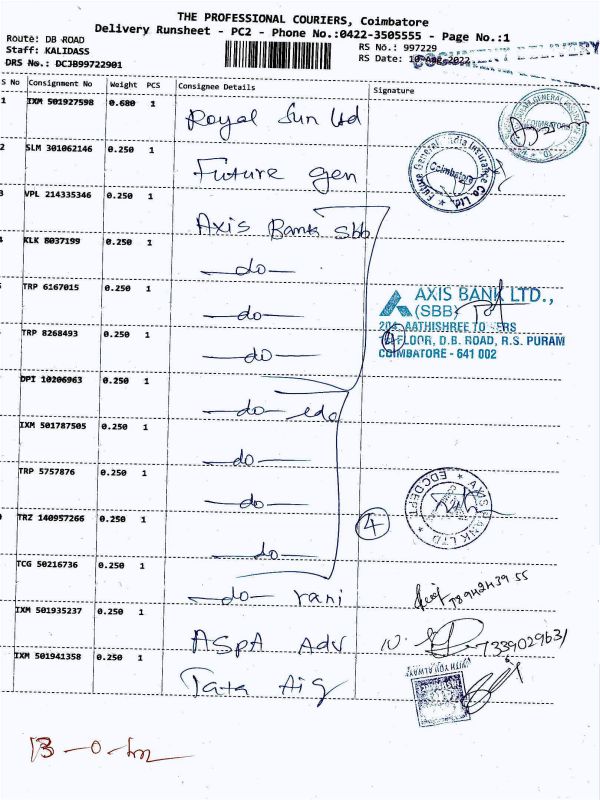 THE PROFESSIONAL COURIERS, Coimbatore
Delivery Runsheet - PC2 - Phone No.:0422-3505555 - Page No.:1
Route: DB ROAD
Staff: KALIDASS
DRS No.: DCJB99722901
RS No.: 997229
RS Date: 10-Aug-2022
DOCUMENT DELIVERY
S No Consignment No Weight PCS Consignee Details Signature
1 IXM 501927598 0.680 1 Royal Sun Ltd
2 SLM 301062146 0.250 1 Future gen
Future Generali India Insurance Co Ltd
Coimbatore
VPL 214335346 0.250 1 Axis Bank Sbb
KLK 8037199 0.250 1 —do—
TRP 6167015 0.250 1 —do—
AXIS BANK LTD.,
(SBB)
TRP 8268493 0.250 1 —do—
FLOOR, D.B. ROAD, R.S. PURAM
COIMBATORE - 641 002
DPI 10206963 0.250 1 —do— edc
IXM 501787505 0.250 1 —do—
TRP 5757876 0.250 1 —do—
AXIS BANK LTD
EDC DEPT
TRZ 140957266 0.250 1 —do—
4
TCG 50216736 0.250 1 —do— rani
IXM 501935237 0.250 1 ASPA Adv
7339029631
IXM 501941358 0.250 1 Tata Aig
WITH YOU ALWAYS